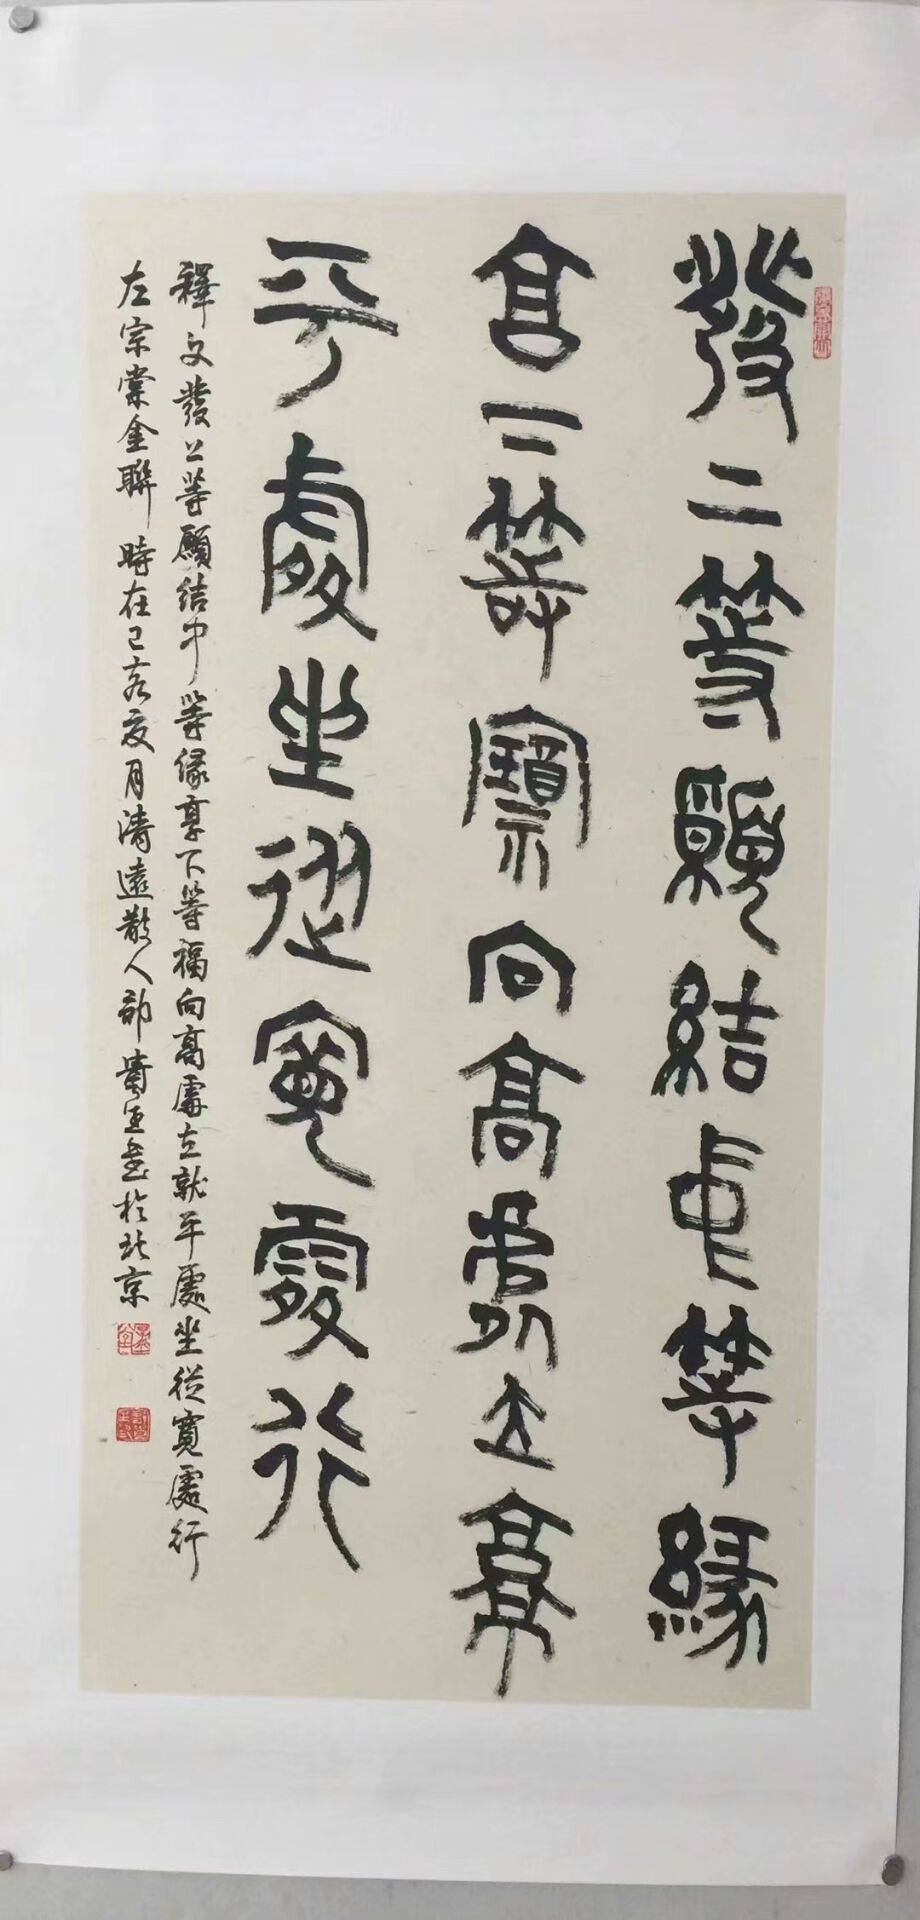 發上等願結中等緣
享下等福向高處立就
平處坐從寬處行
釋文發上等願結中等緣享下等福向高處立就平處坐從寬處行
左宗棠金聯時在己亥夏月濤遠散人部貴玉書於北京